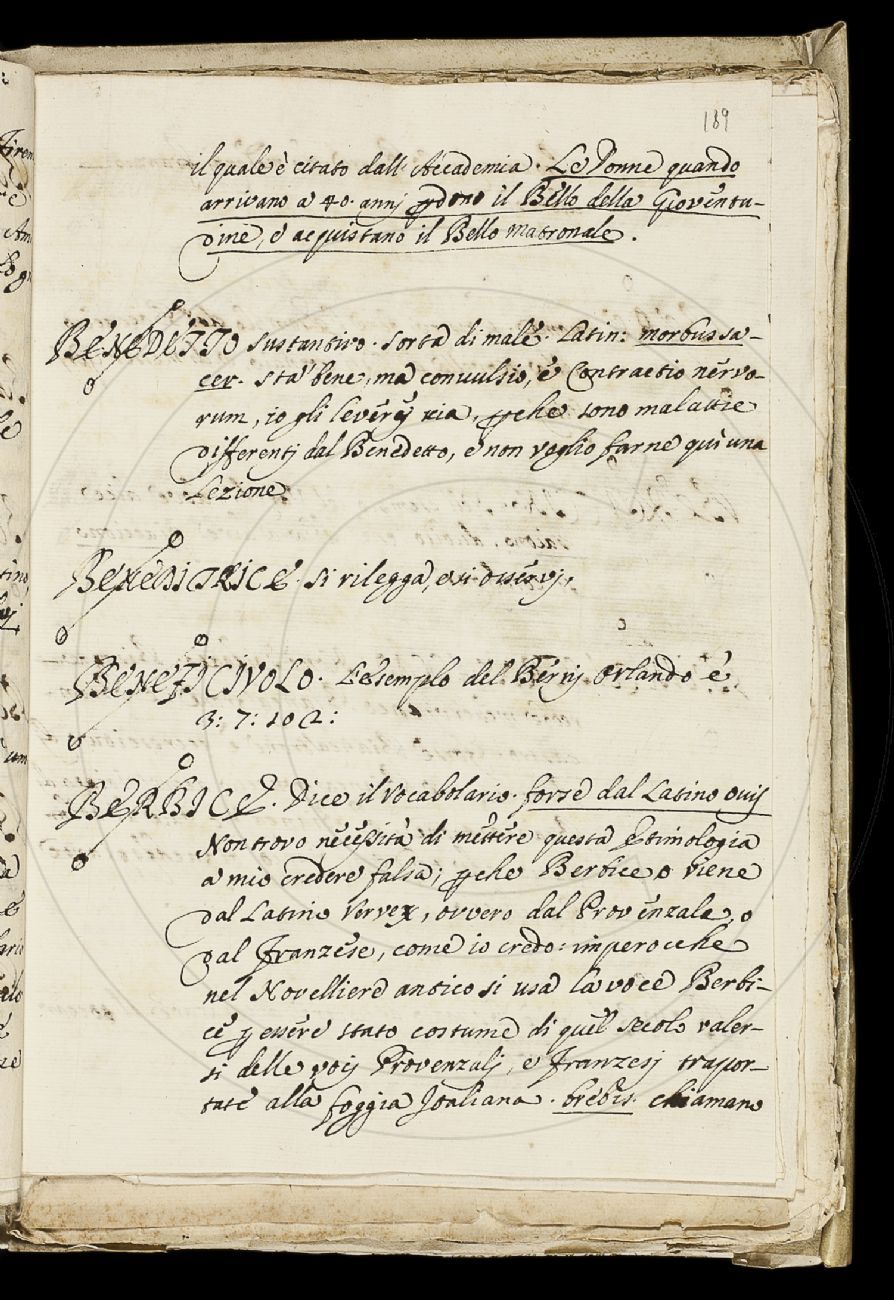 189
il quale è citato dall'Accademia. Le Donne quando
arrivano a 40. annj pdono il Bello della Gioventu-
dine, e acquistano il Bello matronale.
BENEDETTO sustantivo. sorta di male. Latin: morbus sa-
cer. sta bene, ma convulsio, e Contractio nervo-
rum, io gli leverej via, pche sono malattie
differentj dal Benedetto, e non voglio farne quì una
Lezione.
BENEDITRICE. si rilegga, e si osservj,
BENEFICIVOLO. L'esemplo del Bernj Orlando è
3: 7: 102:
BERBICE. Dice il vocabolario. forse dal Latino ovis
Non trovo necessità di mettere questa Etimologia
a mio credere falsa; pche Berbice o viene
dal Latino Vervex, ovvero dal Provenzale, o
dal Franzese, come io credo: imperocche
nel Novelliere antico si usa la voce Berbi-
ce p essere stato costume di quel secolo valer-
si delle vocj Provenzalj, e Franzesj traspor-
tate alla foggia Italiana. brebis. chiamano